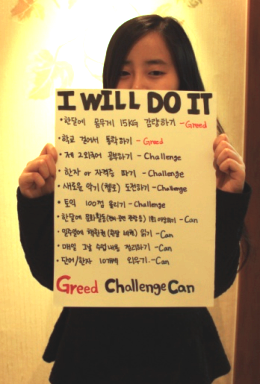 I WILL DO IT
• 한달에 몸무게 1kg 감량하기 - Greed
• 학교 걸어서 통학하기 - Greed
• 제 2외국어 공부하기 - Challenge
• 한자 or 자격증 따기 - Challenge
• 새로운 악기(첼로) 도전하기 - Challenge
• 토익 100점 올리기 - Challenge
• 한달에 문화활동 하기 - Can
• 일주일에 책한권 읽기 - Can
• 매일 그날 수업내용 정리하기 - Can
• 단어/한자 10개씩 외우기 - Can
Greed Challenge Can